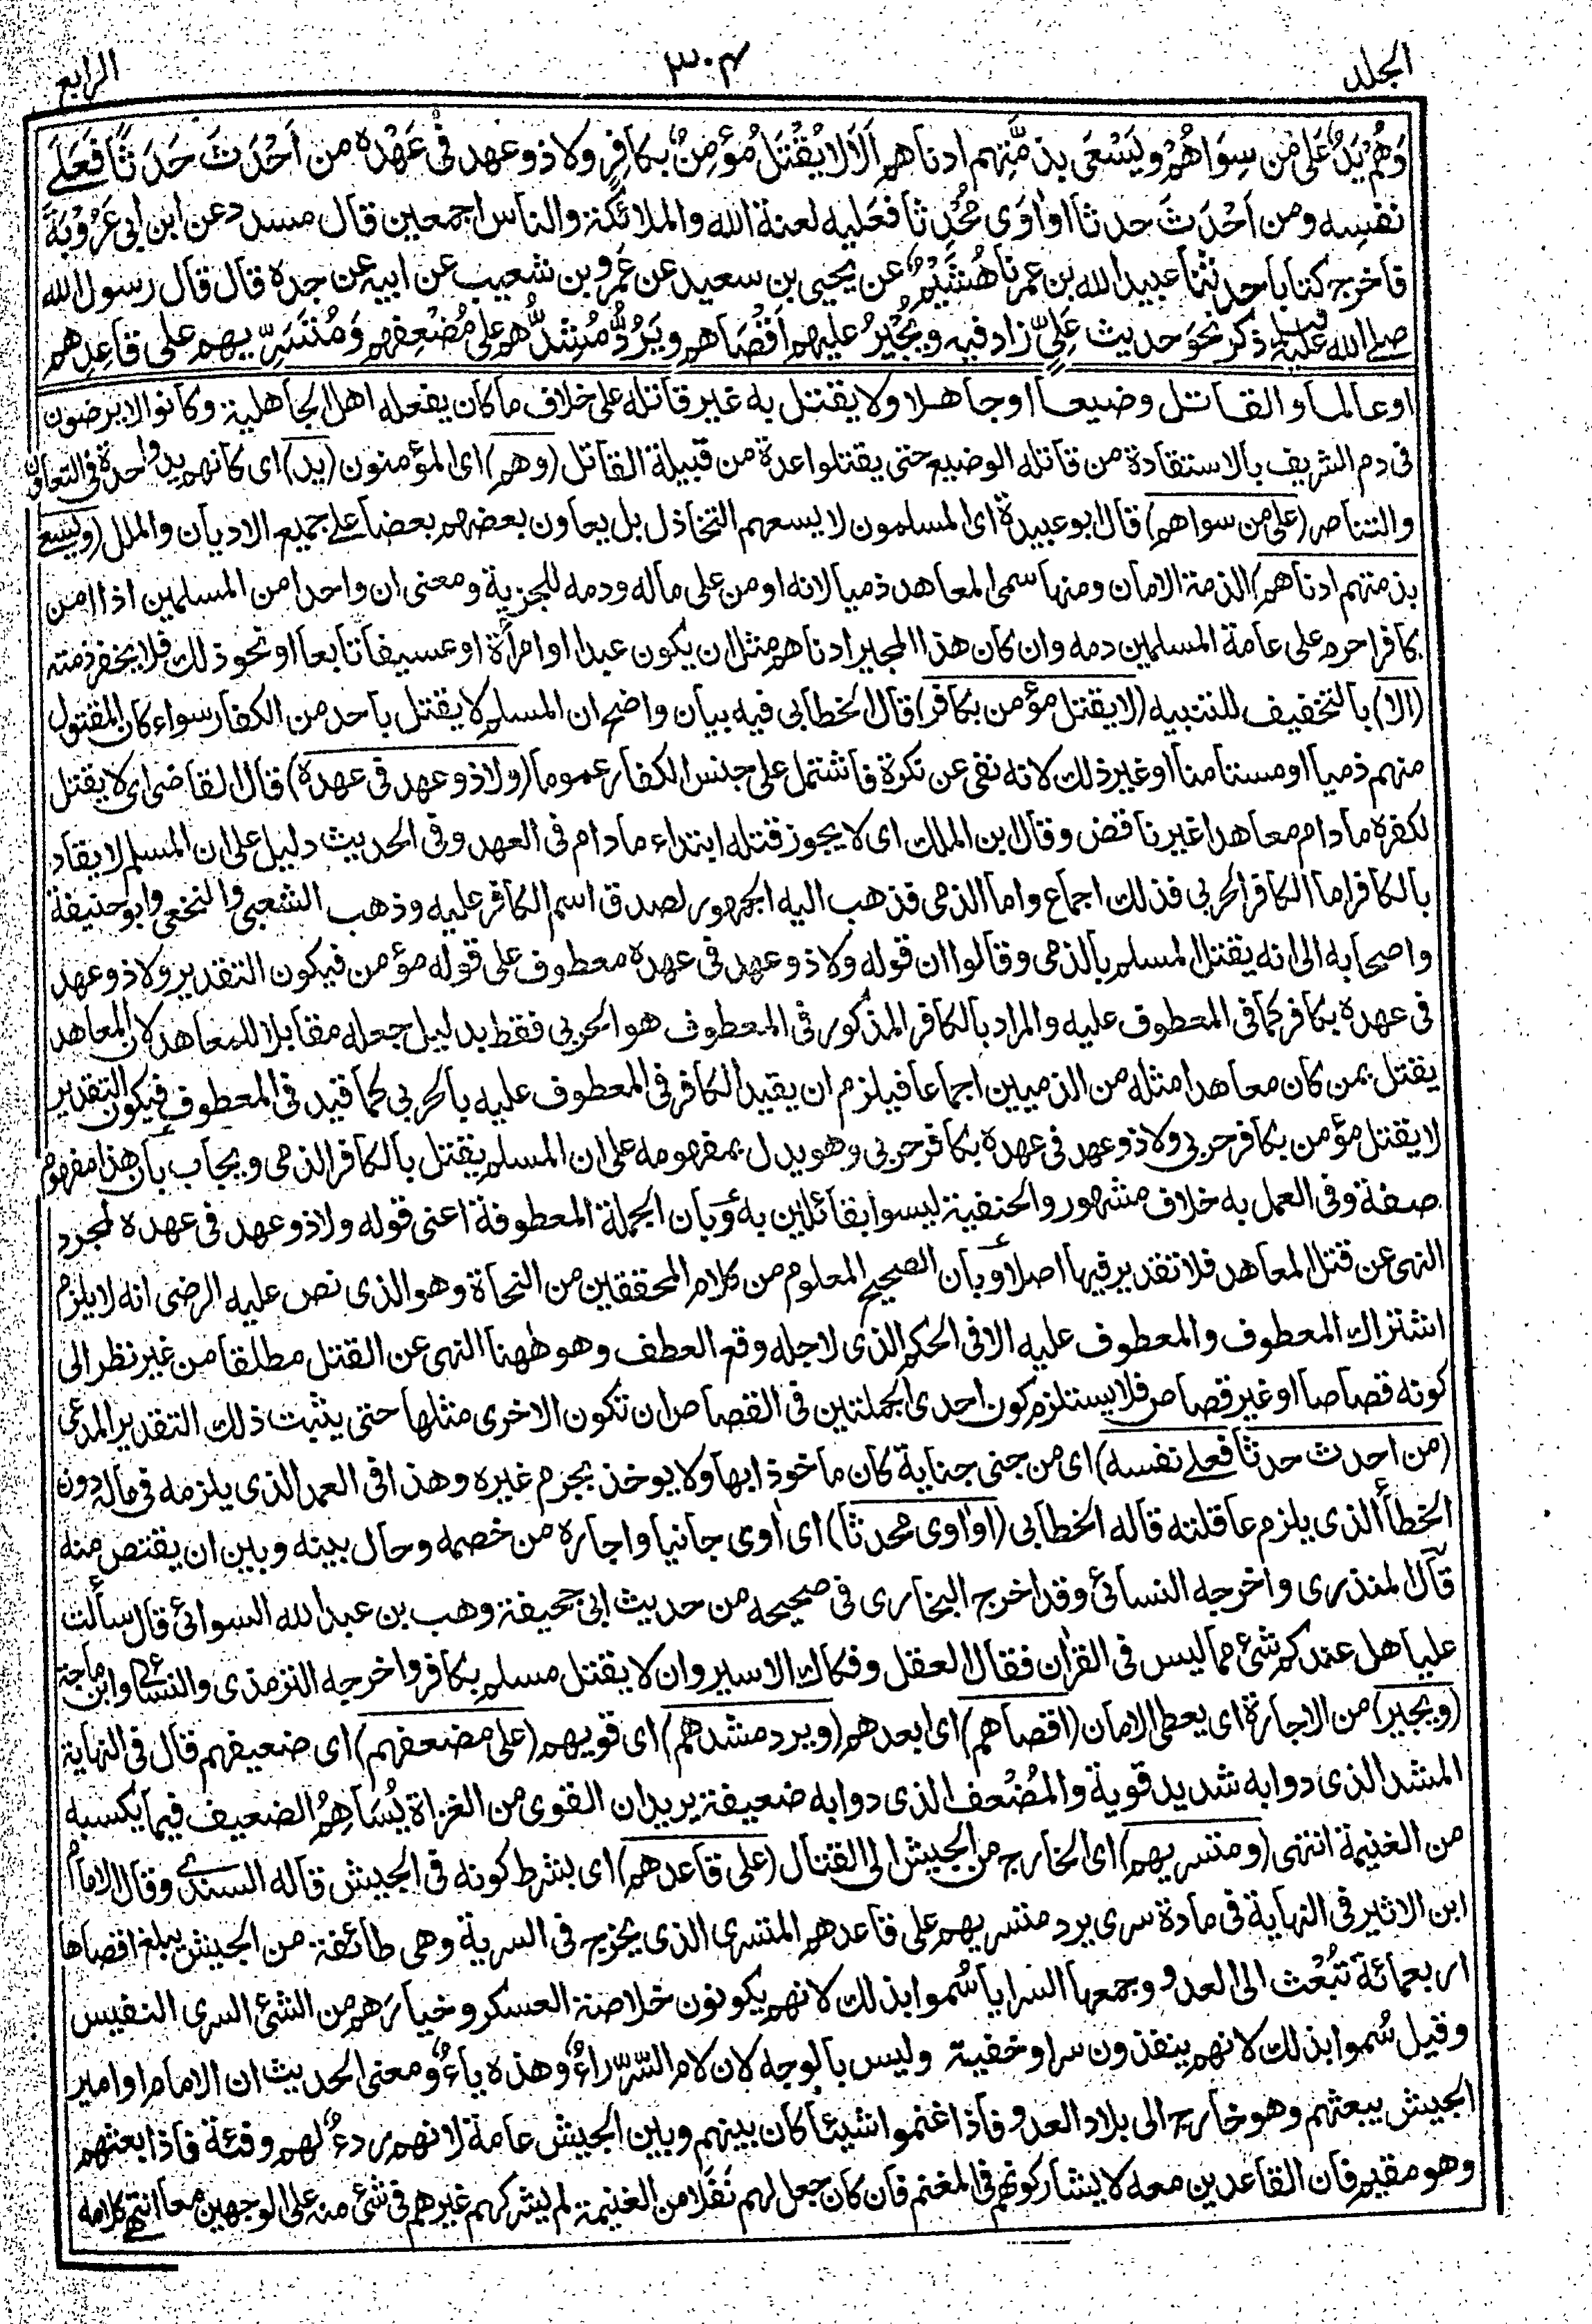 المجلد ٣٠٤ الرابع
وَهُمْ يَدٌ عَلى مَن سِوَاهُمْ وَيَسْعَى بِذِمَّتِهِم ادناهم اَلَا لَا يُقْتَلُ مُؤمِنٌ بِكَافِرٍ ولا ذو عهد فى عَهْدِه من اَحْدَثَ حَدَثًا فَعَلَى
نفسِه ومن اَحْدَثَ حدثا او اٰوَى مُحْدِثا فعَليه لعنة الله والملائكة والناس اجمعين قال مسدد عن ابن ابى عَرُوْبَةَ
فاخرج كتابا حدثنا عبيد الله بن عمر نا هُشَيْمٌ عن يحيى بن سعيد عن عَمْرِو بن شعيب عن ابيه عن جده قال قال رسول الله
صلے الله عليه وسلم ذكر نحوَ حديث عَلِىٍّ زاد فيه ويُجِيْرُ عليهم اَقْصَاهم ويَرُدُّ مُشِدُّهم على مُضْعِفِهم وَمُتَسَرِّيهم على قاعِدِهم
او عالما والقاتل وضيعا او جاهلا ولا يقتل به غير قاتله على خلاف ما كان يفعله اهل الجاهلية وكانوا لا يرضون
فى دم الشريف بالاستقادة من قاتله الوضيع حتى يقتلوا عدة من قبيلة القاتل (وهم) اى المؤمنون (يد) اى كانهم يد واحدة فى التعاون
والتناصر (على من سواهم) قال ابو عبيدة اى المسلمون لا يسعهم التخاذل بل يعاون بعضهم بعضا على جميع الاديان والملل (ويسعى
بذمتهم ادناهم) الذمة الامان ومنها سمى المعاهد ذميا لانه اومن على ماله ودمه للجزية ومعنى ان واحدا من المسلمين اذا امن
كافرا حرم على عامة المسلمين دمه وان كان هذا المجير ادناهم مثل ان يكون عبدا او امرأة او عسيفا تابعا او نحو ذلك فلا يخفر ذمته
(الا) بالتخفيف للتنبيه (لا يقتل مؤمن بكافر) قال الخطابى فيه بيان واضح ان المسلم لا يقتل باحد من الكفار سواء كان المقتول
منهم ذميا او مستامنا او غير ذلك لانه نفى عن نكرة فاشتمل على جنس الكفار عموما (ولا ذو عهد فى عهده) قال القاضى اى لا يقتل
لكفره ما دام معاهدا غير ناقض وقال ابن الملك اى لا يجوز قتله ابتداء ما دام فى العهد وفى الحديث دليل على ان المسلم لا يقاد
بالكافر اما الكافر الحربى فذلك اجماع واما الذمى فذهب اليه الجمهور لصدق اسم الكافر عليه وذهب الشعبى والنخعى وابو حنيفة
واصحابه الى انه يقتل المسلم بالذمى وقالوا ان قوله ولا ذو عهد فى عهده معطوف على قوله مؤمن فيكون التقدير ولا ذو عهد
فى عهده بكافر كما فى المعطوف عليه والمراد بالكافر المذكور فى المعطوف هو الحربى فقط بدليل جعله مقابلا للمعاهد لان المعاهد
يقتل بمن كان معاهدا مثله من الذميين اجماعا فيلزم ان يقيد الكافر فى المعطوف عليه بالحربى كما قيد فى المعطوف فيكون التقدير
لا يقتل مؤمن بكافر حربى ولا ذو عهد فى عهده بكافر حربى وهو يدل بمفهومه على ان المسلم يقتل بالكافر الذمى ويجاب بأن هذا مفهوم
صفة وفى العمل به خلاف مشهور والحنفية ليسوا بقائلين به وبأن الجملة المعطوفة اعنى قوله ولا ذو عهد فى عهده لمجرد
النهى عن قتل المعاهد فلا تقدير فيها اصلا وبأن الصحيح المعلوم من كلام المحققين من النحاة وهو الذى نص عليه الرضى انه لا يلزم
اشتراك المعطوف والمعطوف عليه الا فى الحكم الذى لاجله وقع العطف وهو ههنا النهى عن القتل مطلقا من غير نظر الى
كونه قصاصا او غير قصاص فلا يستلزم كون احدى الجملتين فى القصاص ان تكون الاخرى مثلها حتى يثبت ذلك التقدير المدعى
(من احدث حدثا فعلى نفسه) اى من جنى جناية كان ماخوذا بها ولا يوخذ بجرم غيره وهذا فى العمد الذى يلزمه فى ماله دون
الخطأ الذى يلزم عاقلته قاله الخطابى (او اوى محدثا) اى اٰوى جانيا واجاره من خصمه وحال بينه وبين ان يقتص منه
قال المنذرى واخرجه النسائى وقد اخرج البخارى فى صحيحه من حديث ابى جحيفة وهب بن عبد الله السوائى قال سألت
عليا هل عندكم شئ مما ليس فى القران فقال العقل وفكاك الاسير وان لا يقتل مسلم بكافر واخرجه الترمذى والنسائى وابن ماجة
(ويجير) من الاجارة اى يعطى الامان (اقصاهم) اى ابعدهم (ويرد مشدهم) اى قويهم (على مضعفهم) اى ضعيفهم قال فى النهاية
المشد الذى دوابه شديد قوية والمُضْعف الذى دوابه ضعيفة يريد ان القوى من الغزاة يُسَاهِمُ الضعيف فيما يكسبه
من الغنيمة انتهى (ومتسريهم) اى الخارج من الجيش الى القتال (على قاعدهم) اى بشرط كونه فى الجيش قاله السندى وقال الامام
ابن الاثير فى النهاية فى مادة سرى يرد متسريهم على قاعدهم المتسرى الذى يخرج فى السرية وهى طائفة من الجيش يبلغ اقصاها
اربعمائة تُبْعث الى العدو وجمعها السرايا سُموا بذلك لانهم يكونون خلاصة العسكر وخيارَهم من الشئ السرى النفيس
وقيل سُموا بذلك لانهم ينفذون سرا وخفية وليس بالوجه لان لام السِّرّ راءٌ وهذه ياءٌ ومعنى الحديث ان الامام او امير
الجيش يبعثهم وهو خارج الى بلاد العدو فاذا غنموا شيئا كان بينهم وبين الجيش عامة لانهم ردءٌ لهم وفئة فاذا بعثهم
وهو مقيم فان القاعدين معه لا يشاركونهم فى المغنم فان كان جعل لهم نَفَلا من الغنيمة لم يشركهم غيرهم فى شئ منه على الوجهين معا انتهى كلامه